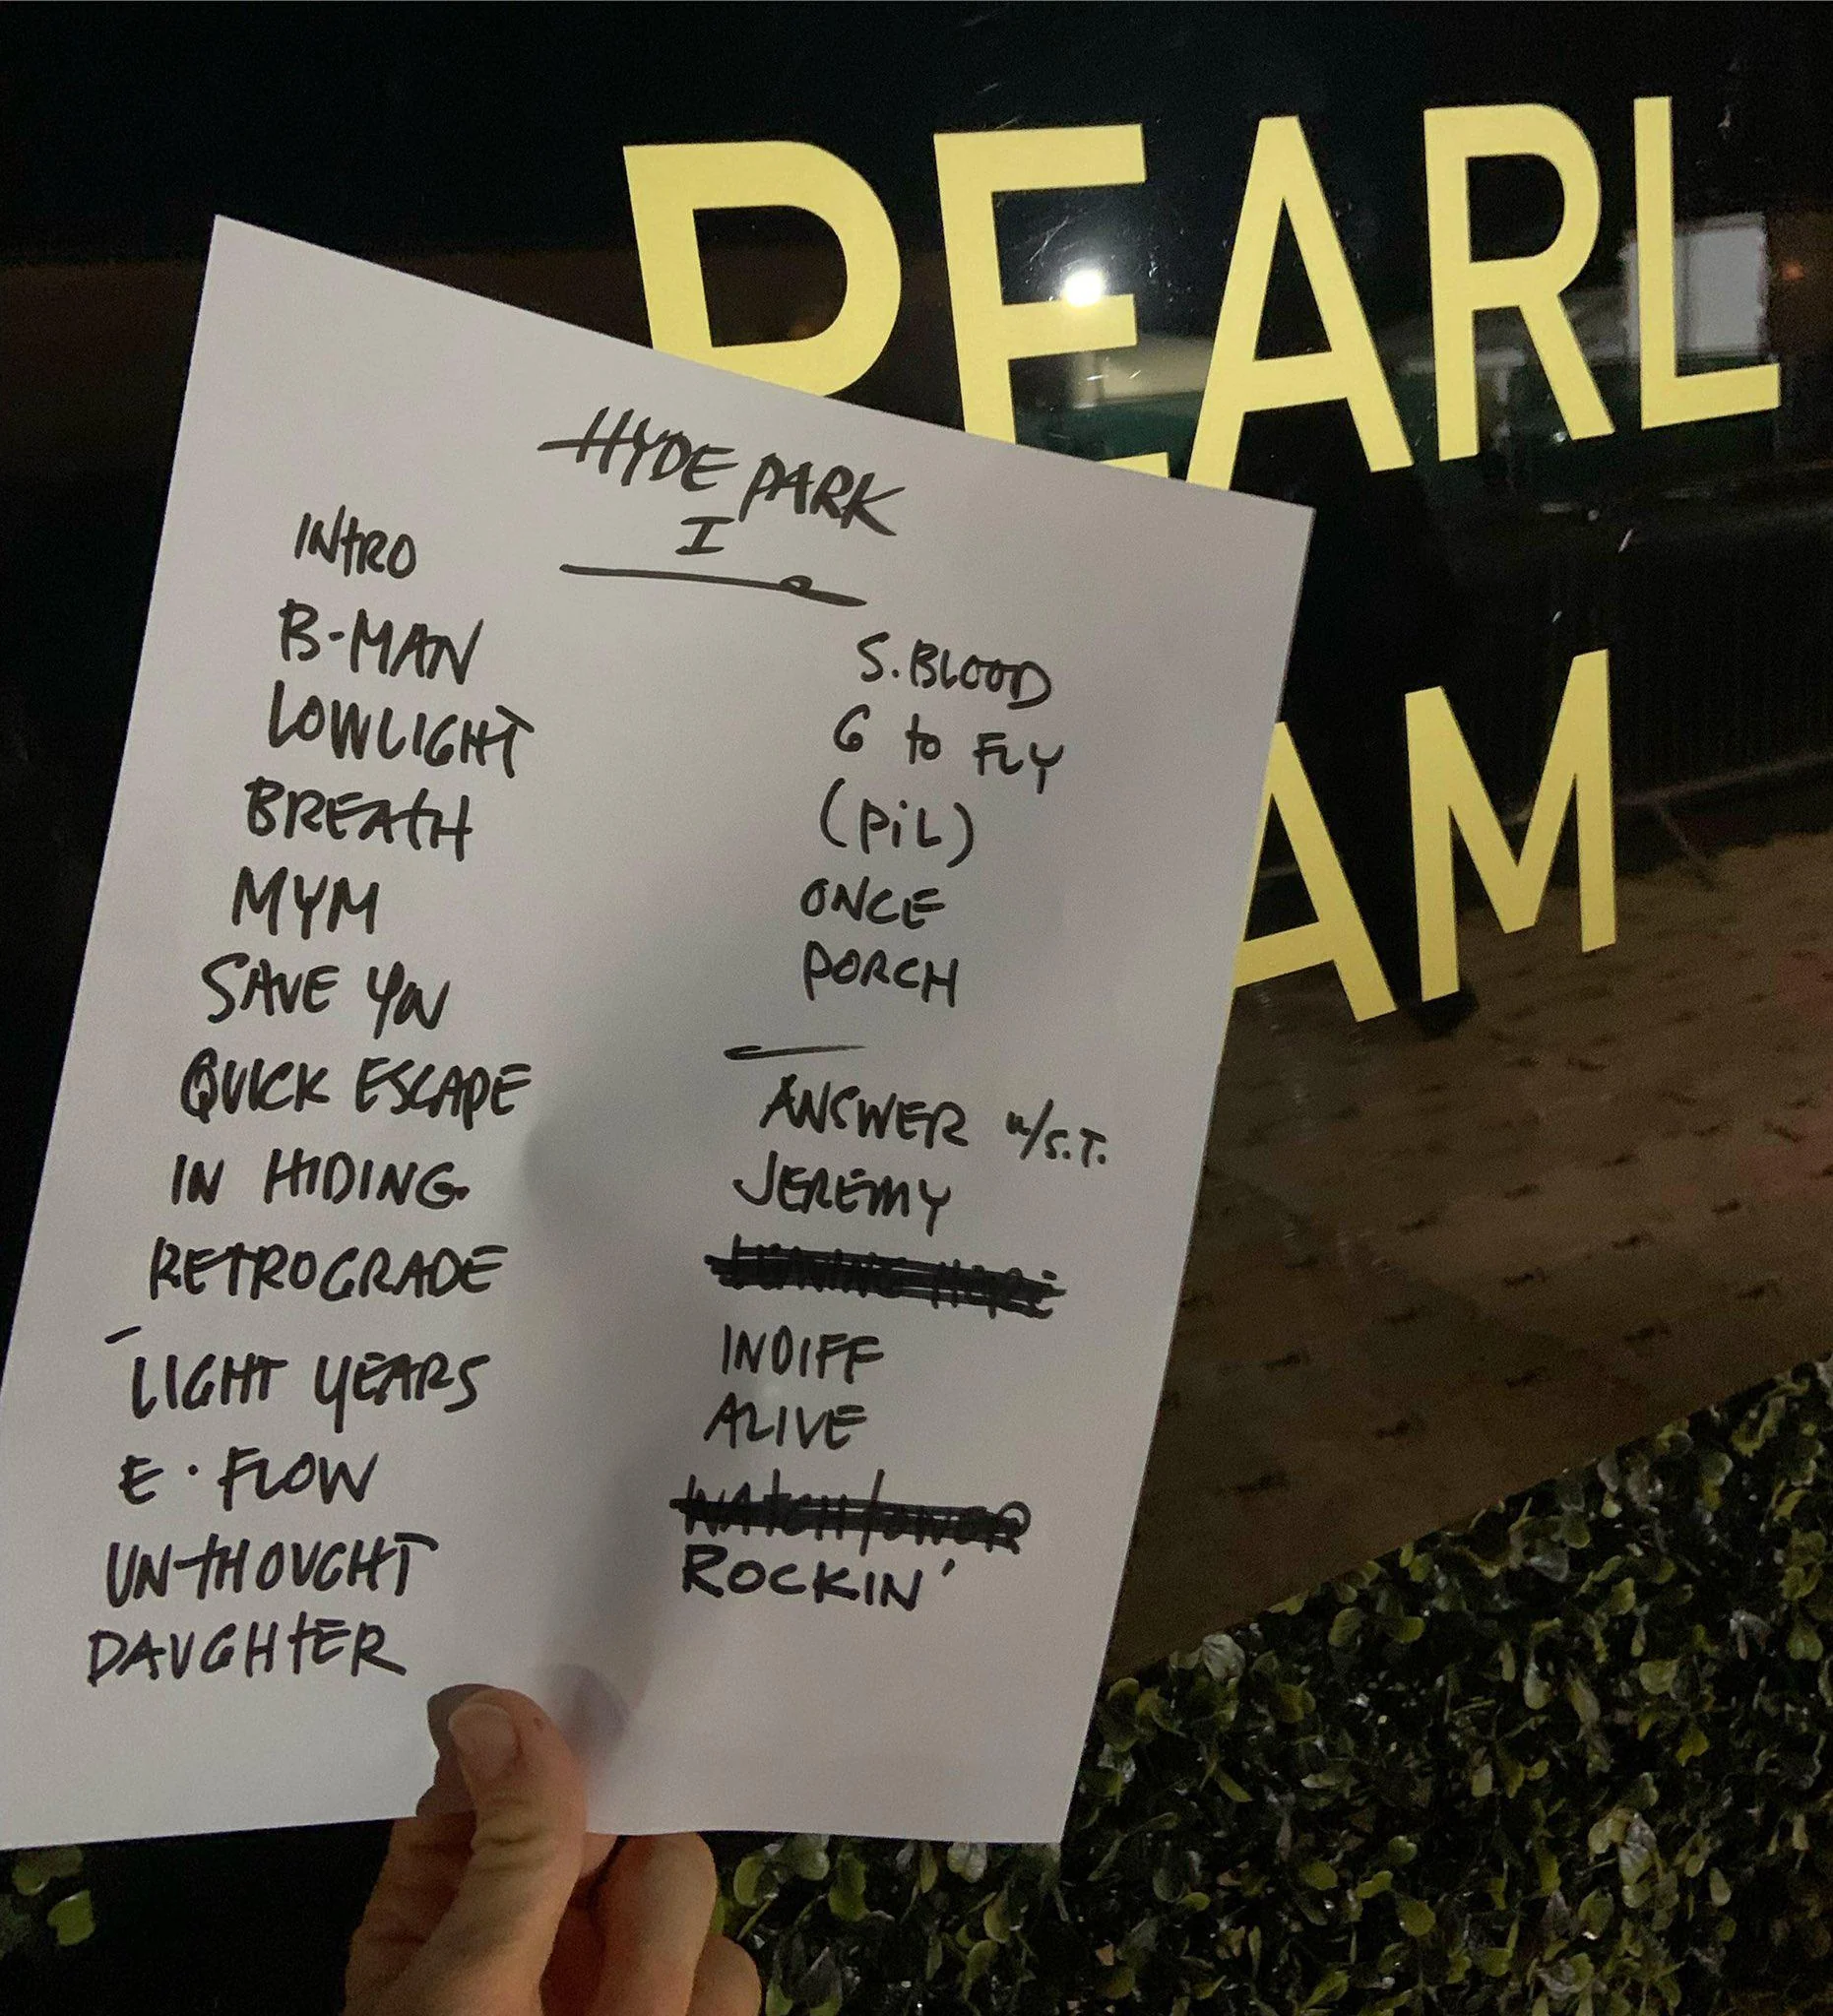 PEARL
AM
HYDE PARK
I
INTRO
B-MAN
LOWLIGHT
BREATH
MYM
SAVE YOU
QUICK ESCAPE
IN HIDING
RETROGRADE
LIGHT YEARS
E. FLOW
UNTHOUGHT
DAUGHTER
S. BLOOD
G to FLY
(PiL)
ONCE
PORCH
ANSWER w/S.T.
JEREMY
LEAVING HERE
INDIFF
ALIVE
WATCHTOWER
ROCKIN'